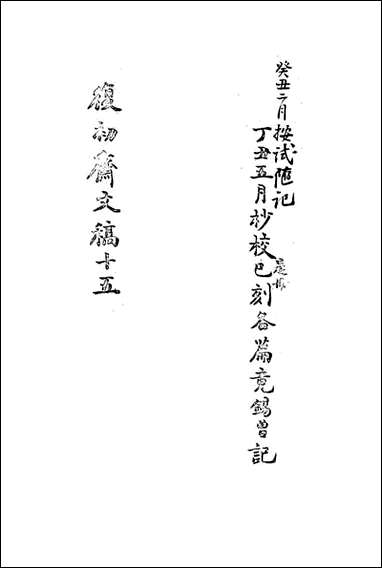 癸丑二月按试随记
丁丑五月抄校已刻各篇竟錫曾記
是冊
復初齋文稿十五